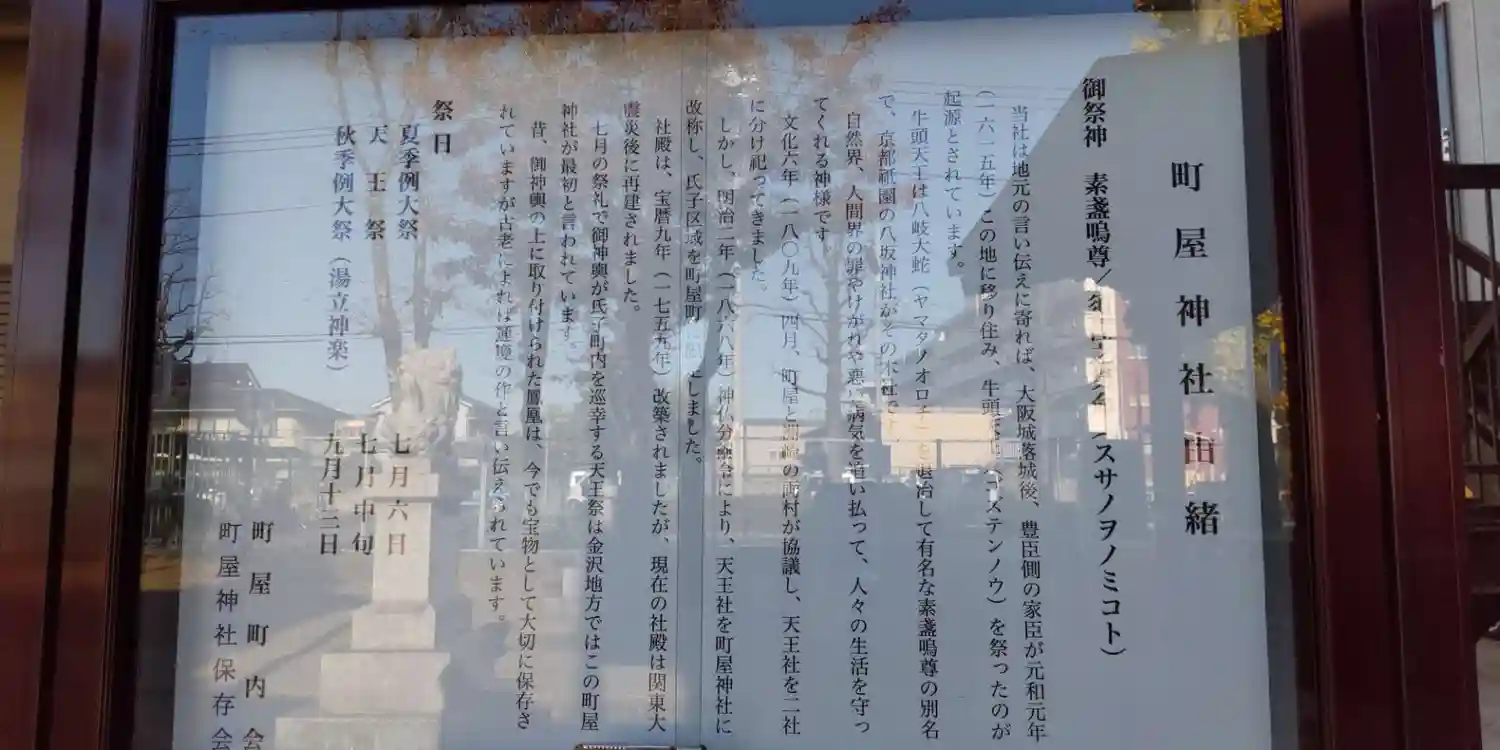 町屋神社由緒
御祭神 素盞嗚尊／ スサノヲノミコト）
当社は地元の言い伝えに寄れば、大阪城落城後、豊臣側の家臣が元和元年
（一六一五年）この地に移り住み、牛頭 ゴズテンノウ）を祭ったのが
起源とされています。
牛頭天王は八岐大蛇（ヤマタノオロチ を退治して有名な素盞嗚尊の別名
で、京都祇園の八坂神社がその本社で
自然界、人間界の罪やけがれや悪い病気を追い払って、人々の生活を守っ
てくれる神様です
文化六年（一八〇九年）四月、町屋と洲崎の両村が協議し、天王社を二社
に分け祀ってきました。
しかし、明治二年（一八六八年）神仏分離令により、天王社を町屋神社に
改称し、氏子区域を町屋町 しました。
社殿は、宝暦九年（一七五九年）改築されましたが、現在の社殿は関東大
震災後に再建されました。
七月の祭礼で御神輿が氏子町内を巡幸する天王祭は金沢地方ではこの町屋
神社が最初と言われています。
昔、御神輿の上に取り付けられた鳳凰は、今でも宝物として大切に保存さ
れていますが古老によれば運慶の作と言い伝えられています。
祭日
夏季例大祭 七月六日
天王祭 七月中旬
秋季例大祭（湯立神楽） 九月十三日
町屋町内会
町屋神社保存会